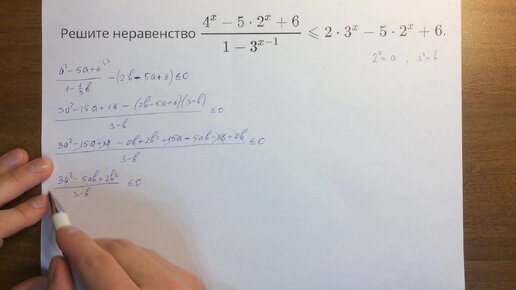 Решите неравенство (4^x − 5 · 2^x + 6)/(1 − 3^(x−1)) ⩽ 2 · 3^x − 5 · 2^x + 6.
2^x = a ; 3^x = b
(a² − 5a + 6)/(1 − 1/3 b) − (2b − 5a + 6) ≤ 0
(3a² − 15a + 18 − (2b − 5a + 6)(3 − b))/(3 − b) ≤ 0
(3a² − 15a + 18 − 6b + 2b² + 15a − 5ab − 18 + 6b)/(3 − b) ≤ 0
(3a² − 5ab + 2b²)/(3 − b) ≤ 0